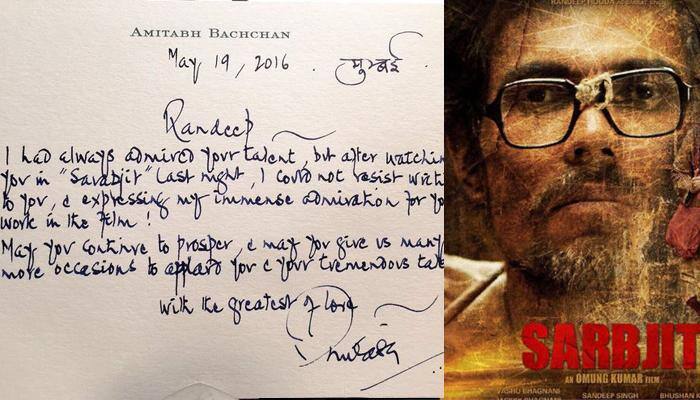 AMITABH BACHCHAN
May 19, 2016 . मुम्बई.
Randeep
I had always admired your talent, but after watchin
you in "Sarabjit" last night, I could not resist writi
to you, & expressing my immense admiration for yo
work in the film!
May you continue to prosper, & may you give us many
more occasions to applaud you & your tremendous tale
with the greatest of love
RANDEEP HOODA
SARBJIT
AN OMUNG KUMAR FILM
VASHU BHAGNANI SANDEEP SINGH BHUSHAN